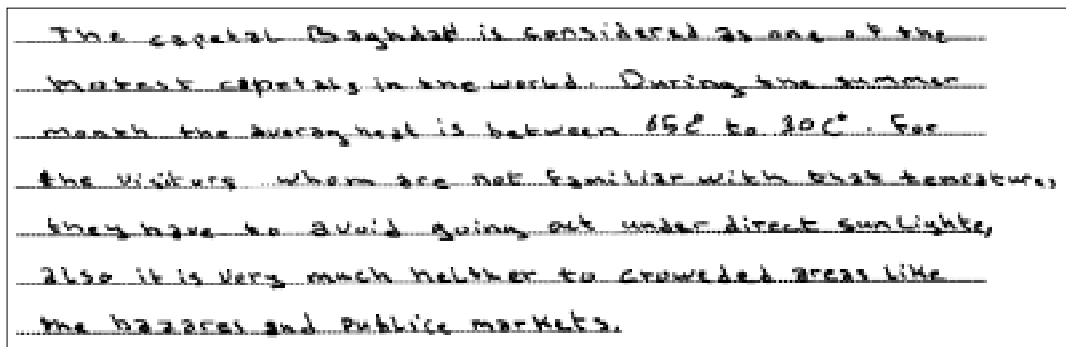 The capetal Baghdad is considered as one of the
hotest capetals in the world. During the summer
month the averag heat is between 65c° to 30c°. For
the visiturs whom are not familiar with that temrature,
they have to avoid going out under direct sunlighte,
also it is very much helther to croweded areas like
the bazares and publice markets.